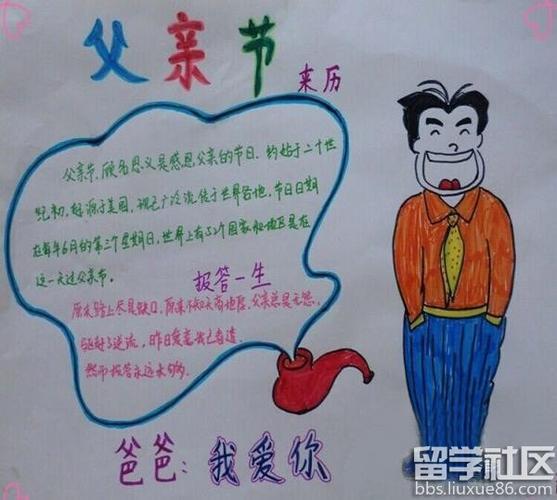 父亲节
来历
父亲节,顾名思义是感恩父亲的节日.约始于二十世
纪初,起源于美国,现已广泛流传于世界各地,节日日期
在每年6月的第三个星期日,世界上有52个国家和地区是在
这一天过父亲节。
报答一生
原来路上尽是缺口,原来不知天高地厚,父亲总是无怨
了逆流,昨日爱意我已看透
然而报答永远未够.
爸爸:我爱你
留学社区
bbs.liuxue86.com